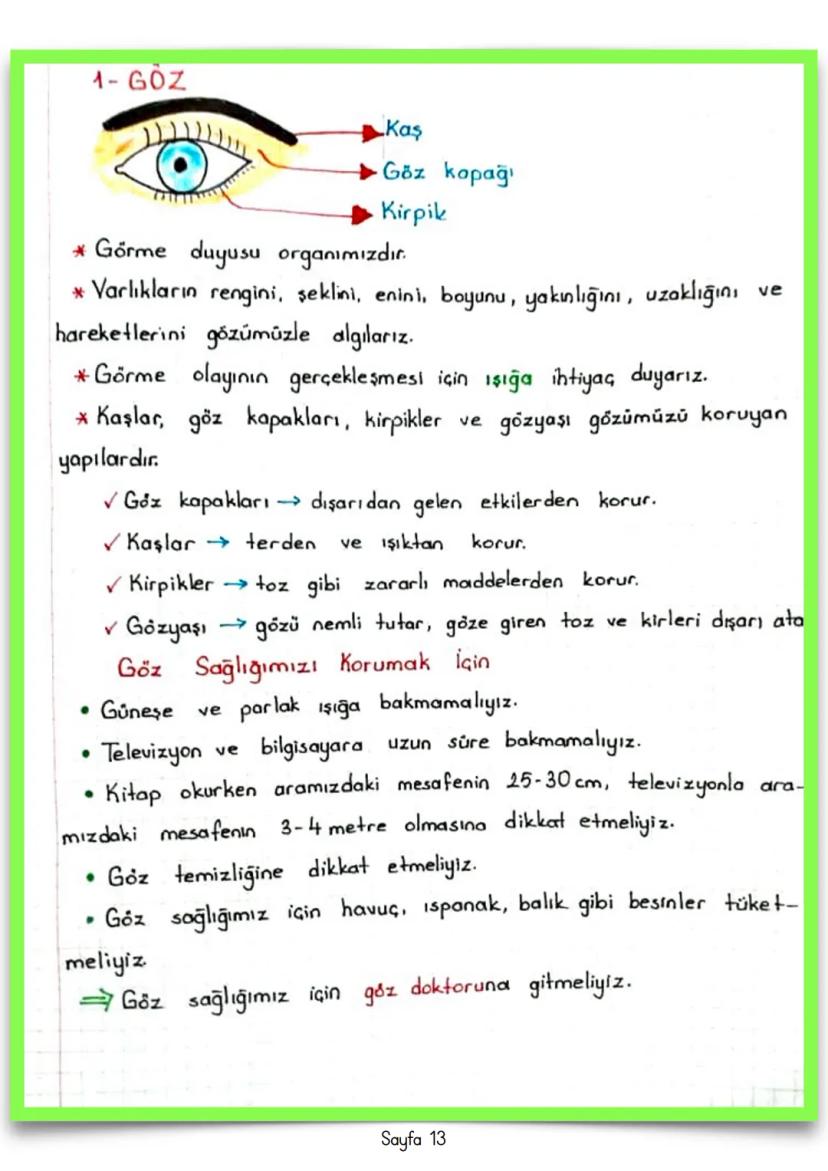 1- GÖZ
Kaş
Göz kapağı
Kirpik
* Görme duyusu organımızdır.
* Varlıkların rengini, şeklini, enini, boyunu, yakınlığını, uzaklığını ve
hareketlerini gözümüzle algılarız.
* Görme olayının gerçekleşmesi için ışığa ihtiyaç duyarız.
* Kaşlar, göz kapakları, kirpikler ve gözyaşı gözümüzü koruyan
yapılardır.
✓ Göz kapakları → dışarıdan gelen etkilerden korur.
✓ Kaşlar → terden ve ışıktan korur.
✓ Kirpikler → toz gibi zararlı maddelerden korur.
✓ Gözyaşı → gözü nemli tutar, göze giren toz ve kirleri dışarı ata
Göz Sağlığımızı Korumak İçin
• Güneşe ve parlak ışığa bakmamalıyız.
• Televizyon ve bilgisayara uzun süre bakmamalıyız.
• Kitap okurken aramızdaki mesafenin 25-30 cm, televizyonla ara-
mızdaki mesafenin 3-4 metre olmasına dikkat etmeliyiz.
• Göz temizliğine dikkat etmeliyiz.
• Göz sağlığımız için havuç, ıspanak, balık gibi besinler tüket-
meliyiz.
⇒ Göz sağlığımız için göz doktoruna gitmeliyiz.
Sayfa 13